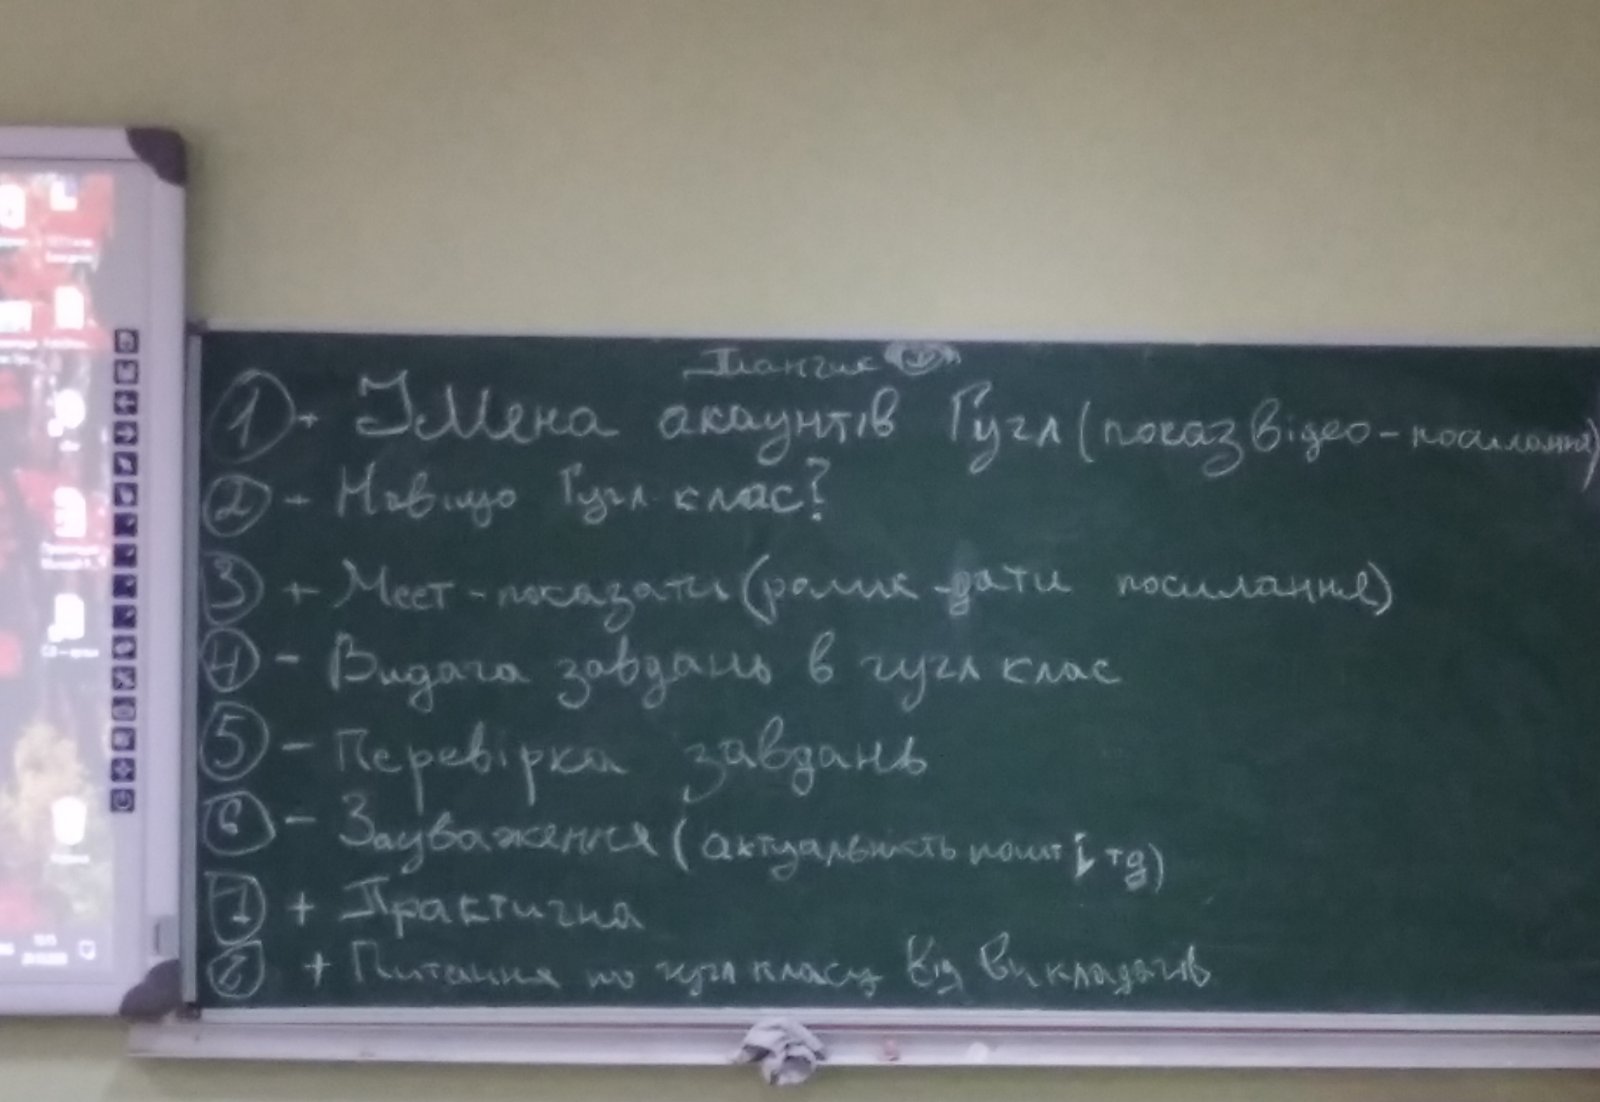 Планчик
1 + Імена акаунтів Гугл (показ відео - посилання)
2 - Навіщо Гугл клас?
3 + Меет - показати (ролик - дати посилання)
4 - Видача завдань в гугл клас
5 - Перевірка завдань
6 - Зауваження (актуальність пошт і тд)
7 + Практична
8 + Питання по гугл класу від викладачів